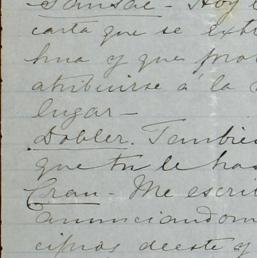 Sansac - Hoy
carta que se
hua y que
atribuirse á la
lugar -
Dobler. Tambié
que tu le has
Cran - Me escri
anunciandom
cipios de este y